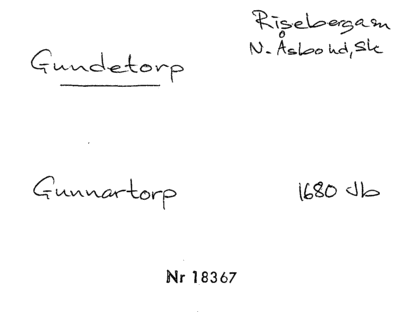 Riseberga sn
Gundetorp
N. Åsbo hd, Sk
Gunnartorp 1680 Jb
Nr 18367